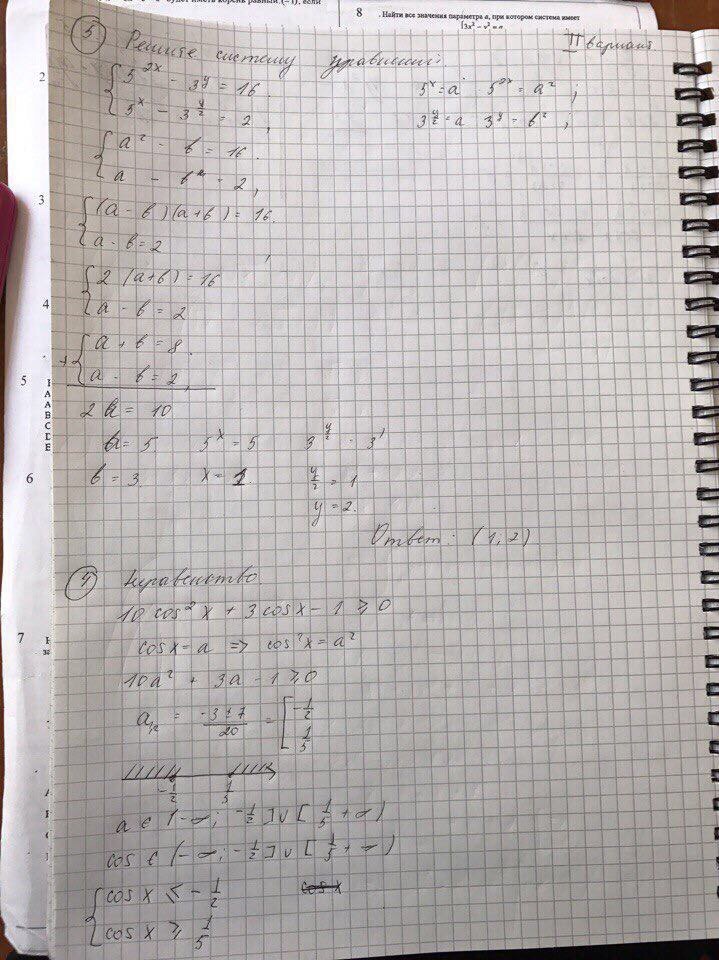 будет иметь корень равный (−1), если
8 . Найти все значения параметра a, при котором система имеет
3x² − y² = a
II вариант
5 Решите систему уравнений:
5^2x − 3^y = 16
5^x − 3^(y/2) = 2,
5^x = a 5^2x = a² ;
3^(y/2) = a 3^y = b² ;
a² − b = 16
a − b = 2,
(a − b)(a + b) = 16.
a − b = 2,
2 (a + b) = 16
a − b = 2
+ a + b = 8.
a − b = 2,
2a = 10
a = 5. 5^x = 5 3^(y/2) = 3^1
b = 3. x = 1. y/2 = 1
y = 2.
Ответ: (1; 2)
4 Неравенство.
10 cos²x + 3 cos x − 1 ≥ 0
cos x = a => cos²x = a²
10a² + 3a − 1 ≥ 0
a1,2 = (−3 ± 7)/20 = [ −1/2
1/5
−1/2 1/5
a ∈ (−∞; −1/2] ∪ [1/5 + ∞)
cos ∈ (−∞; −1/2] ∪ [1/5 + ∞)
cos x ≤ −1/2 cos x
cos x ≥ 1/5
2
3
4
5
A
A
B
C
D
E
6
7